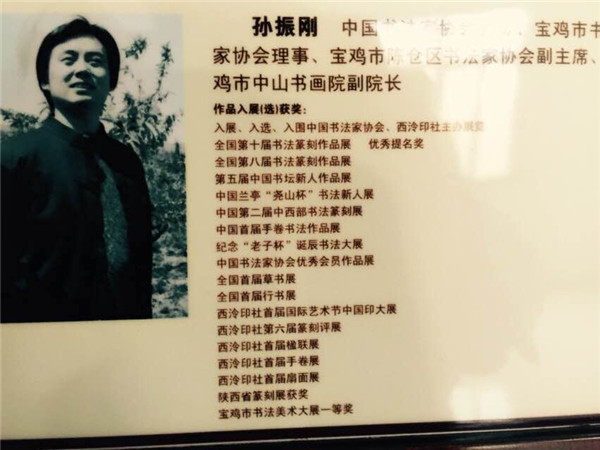 孙振刚 中国书法家协会会员、宝鸡市书
家协会理事、宝鸡市陈仓区书法家协会副主席、
鸡市中山书画院副院长
作品入展(选)获奖:
入展、入选、入围中国书法家协会、西泠印社主办展览
全国第十届书法篆刻作品展 优秀提名奖
全国第八届书法篆刻作品展
第五届中国书坛新人作品展
中国兰亭“尧山杯”书法新人展
中国第二届中西部书法篆刻展
中国首届手卷书法作品展
纪念“老子杯”诞辰书法大展
中国书法家协会优秀会员作品展
全国首届草书展
全国首届行书展
西泠印社首届国际艺术节中国印大展
西泠印社第六届篆刻评展
西泠印社首届楹联展
西泠印社首届手卷展
西泠印社首届扇面展
陕西省篆刻展获奖
宝鸡市书法美术大展一等奖